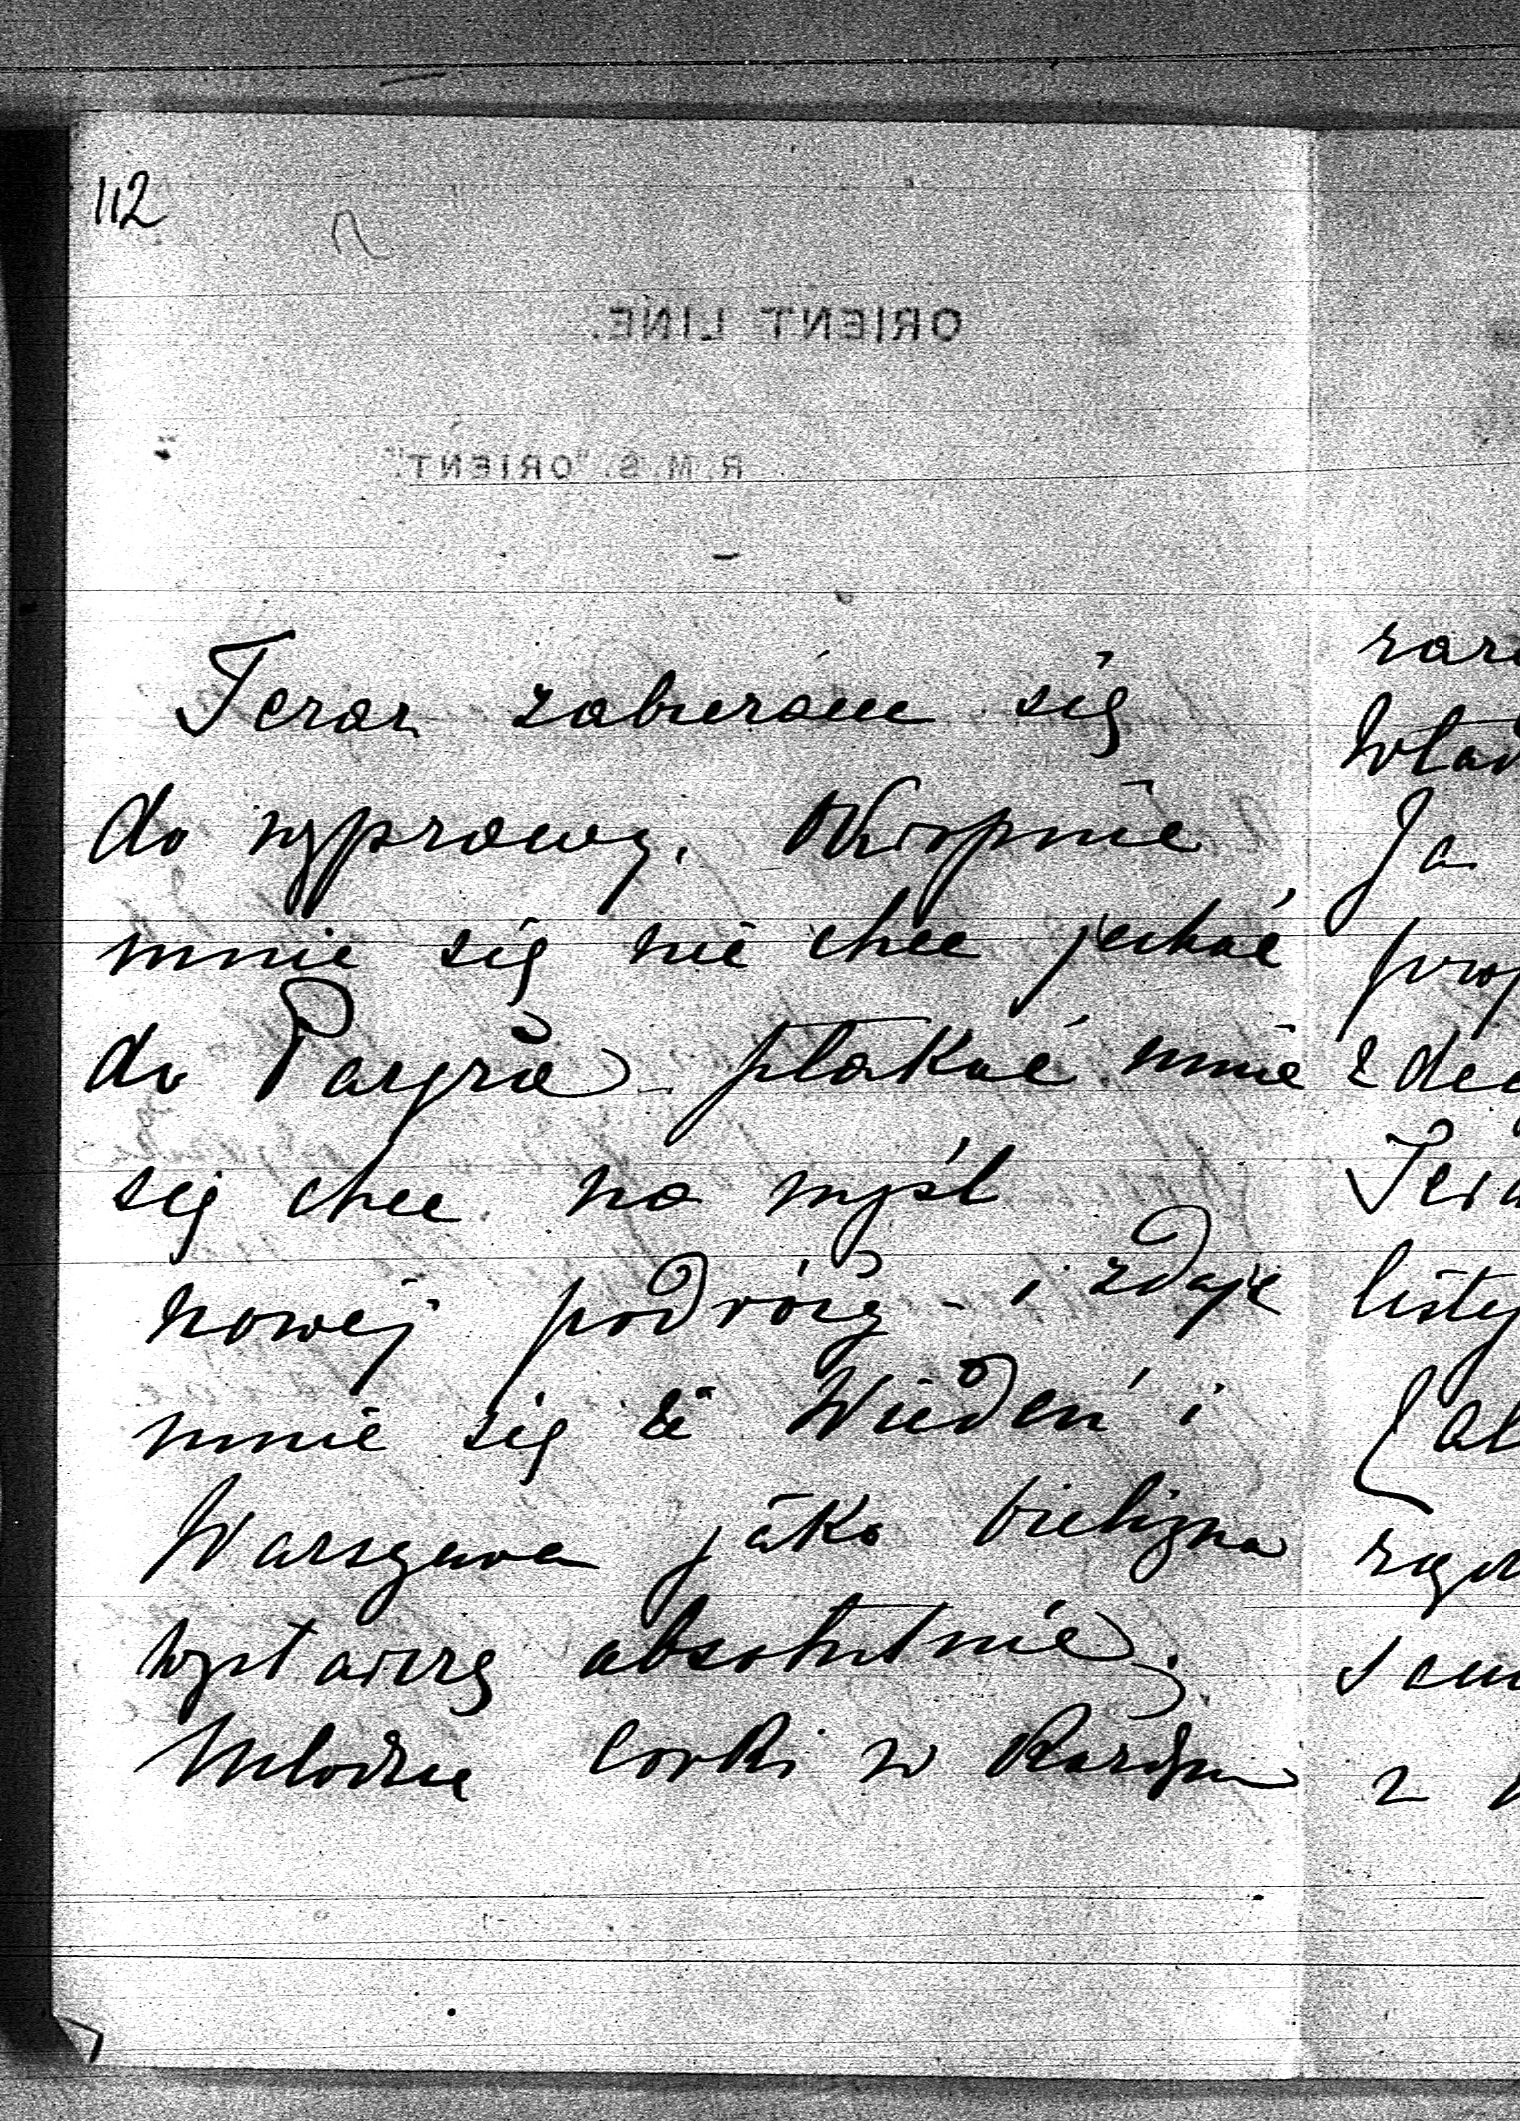 112
ORIENT LINE.
R. M. S. "ORIENT".
Teraz zabieram się
do wyprawy. Okropnie
mnie się nie chce jechać
do Paryża płakać mnie
się chce na myśl
nowej podróży - i zdaje
mnie się że Wiedeń i
Warszawa jako bielizna
wystarczy absolutnie.
Młodzie Corki w każdym
Ja
listy
z